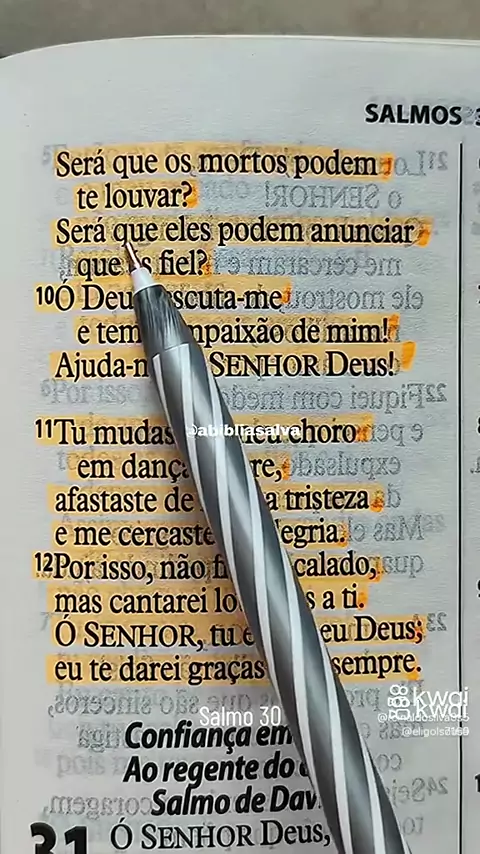 SALMOS 3
Será que os mortos podem
te louvar?
Será que eles podem anunciar
que és fiel?
10Ó Deu escuta-me
e tem mpaixão de mim!
Ajuda-m SENHOR Deus!
11Tu mudas eu choro
em dança re,
afastaste de a tristeza
e me cercaste egria.
12Por isso, não fi calado,
mas cantarei lo s a ti.
Ó SENHOR, tu é eu Deus;
eu te darei graças sempre.
@abibliasalva
Salmo 30
kwai
Confiança em
Ao regente do
Salmo de Dav
31 Ó SENHOR Deus,